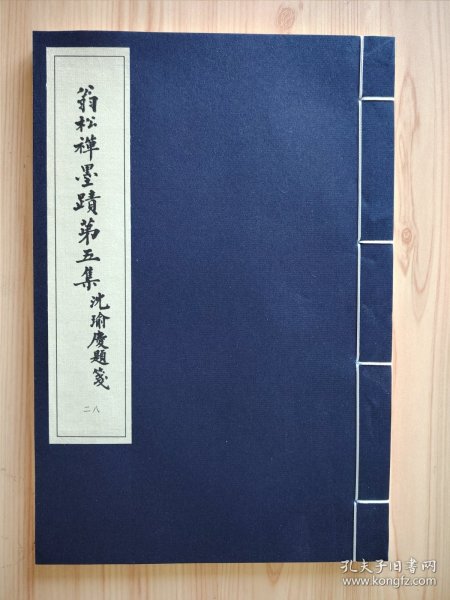 翁松禪墨蹟第五集
沈瑜慶題箋
二八
孔夫子旧书网
www.kongfz.com